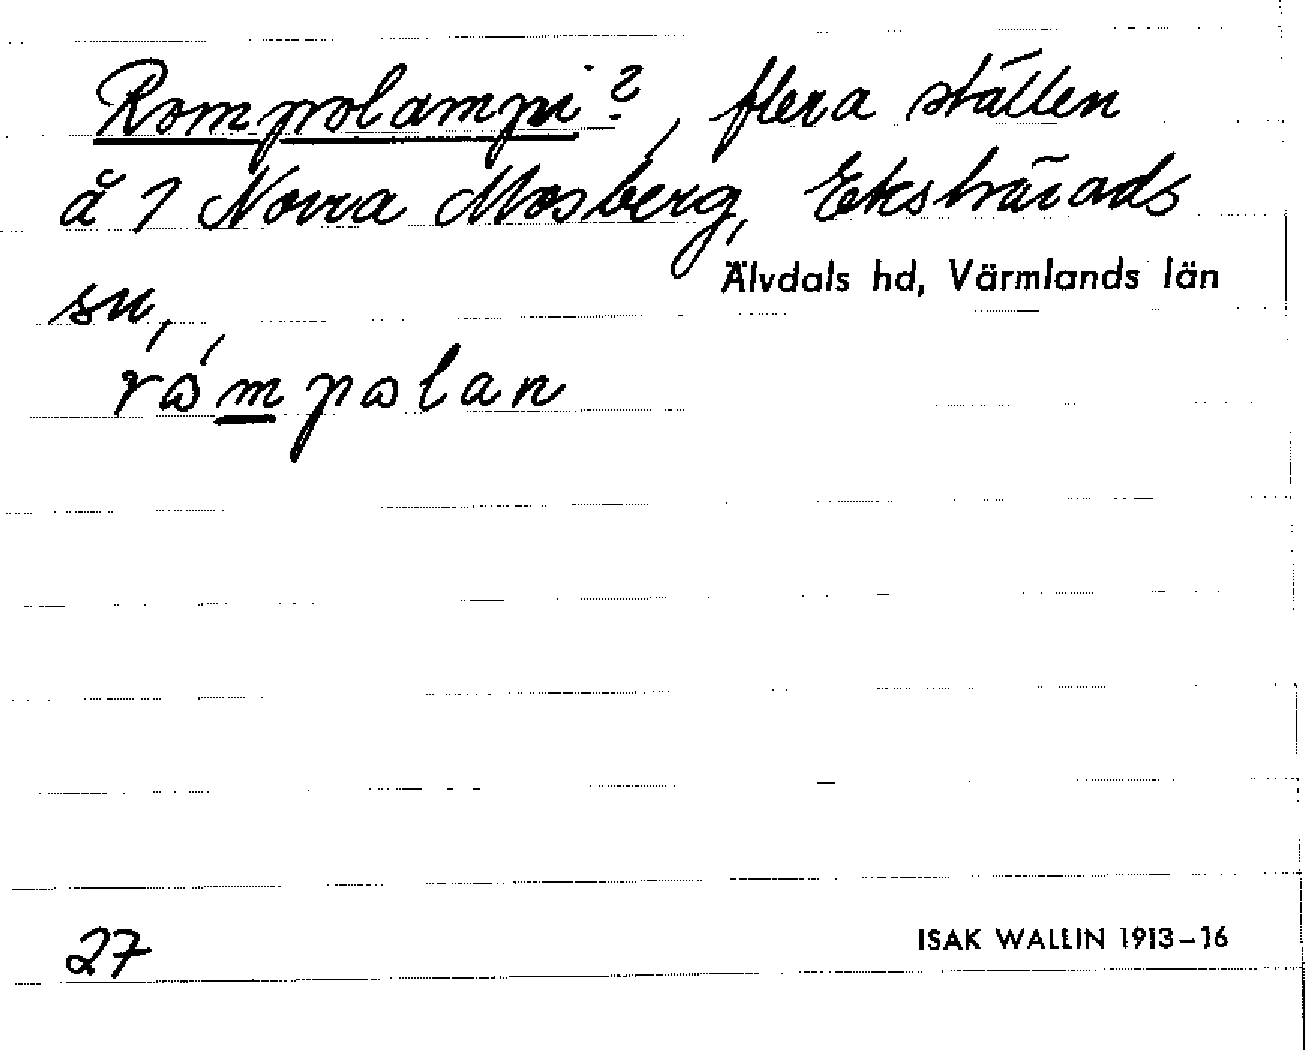 Rompolampi?, flera ställen
å 1 Norra Mosberg, Ekshärads
Älvdals hd, Värmlands län
sn,
råmpolan
27
ISAK WALLIN 1913–16